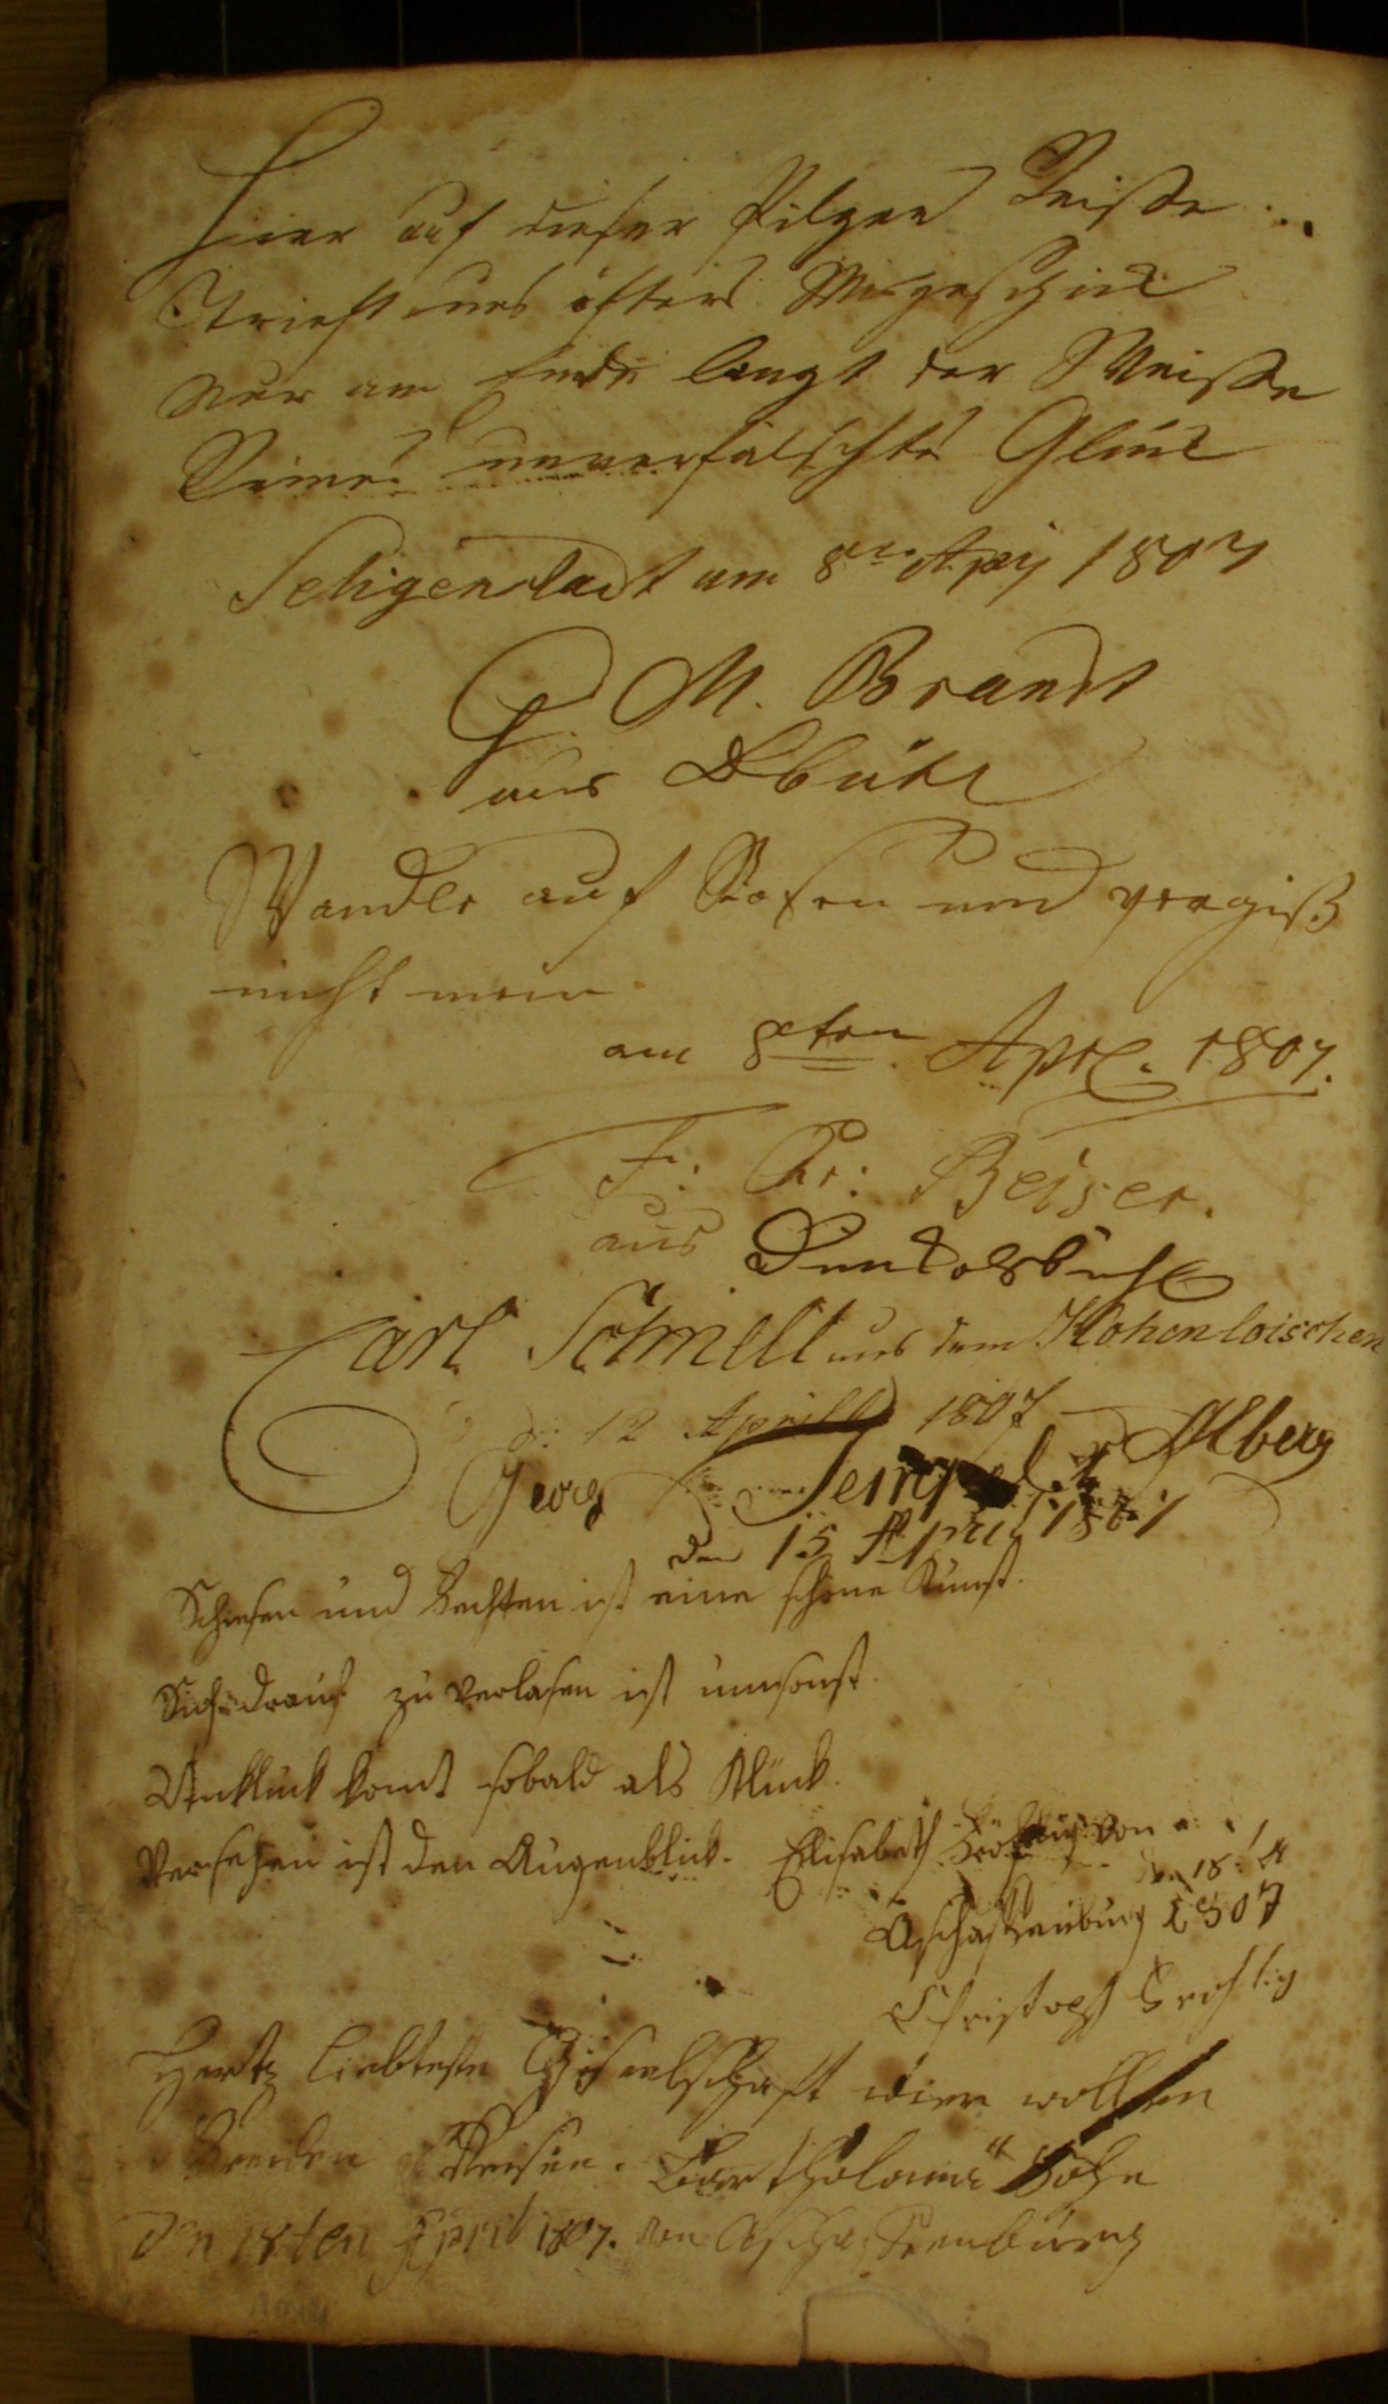 Hier auf dieser Pilger Reisse
Trieft uns öfters Misgeschick
Nur am Ende langt der Weisse
Reines unverfälschtes Glück
Seligenstadt am 8ten Apr 1807
M. Brandt
aus Dbühl
Wandle auf Rosen und vergiß
nicht mein
am 8ten Aprl. 1807.
F: Chr: Beiser.
aus Dinkelsbühl
Carl Schmell aus dem Hohenloischen
d: 12 Aprill 1807
Georg Alberg
den 15 Apri
Schiesen und Fechten ist eine schöne Kunst.
Sich drauf zu verlasen ist umsonst.
Uncklück komt sobald als Klück.
Versehen ist den Augenblick. Elisabeth von
den 18: A
Aschaffenburg 1807
Christoph
Hertz liebtesten Geselschaft wier wollen
Reisen. Bartholomä
Den 18ten April 1807. von Aschaffenburg